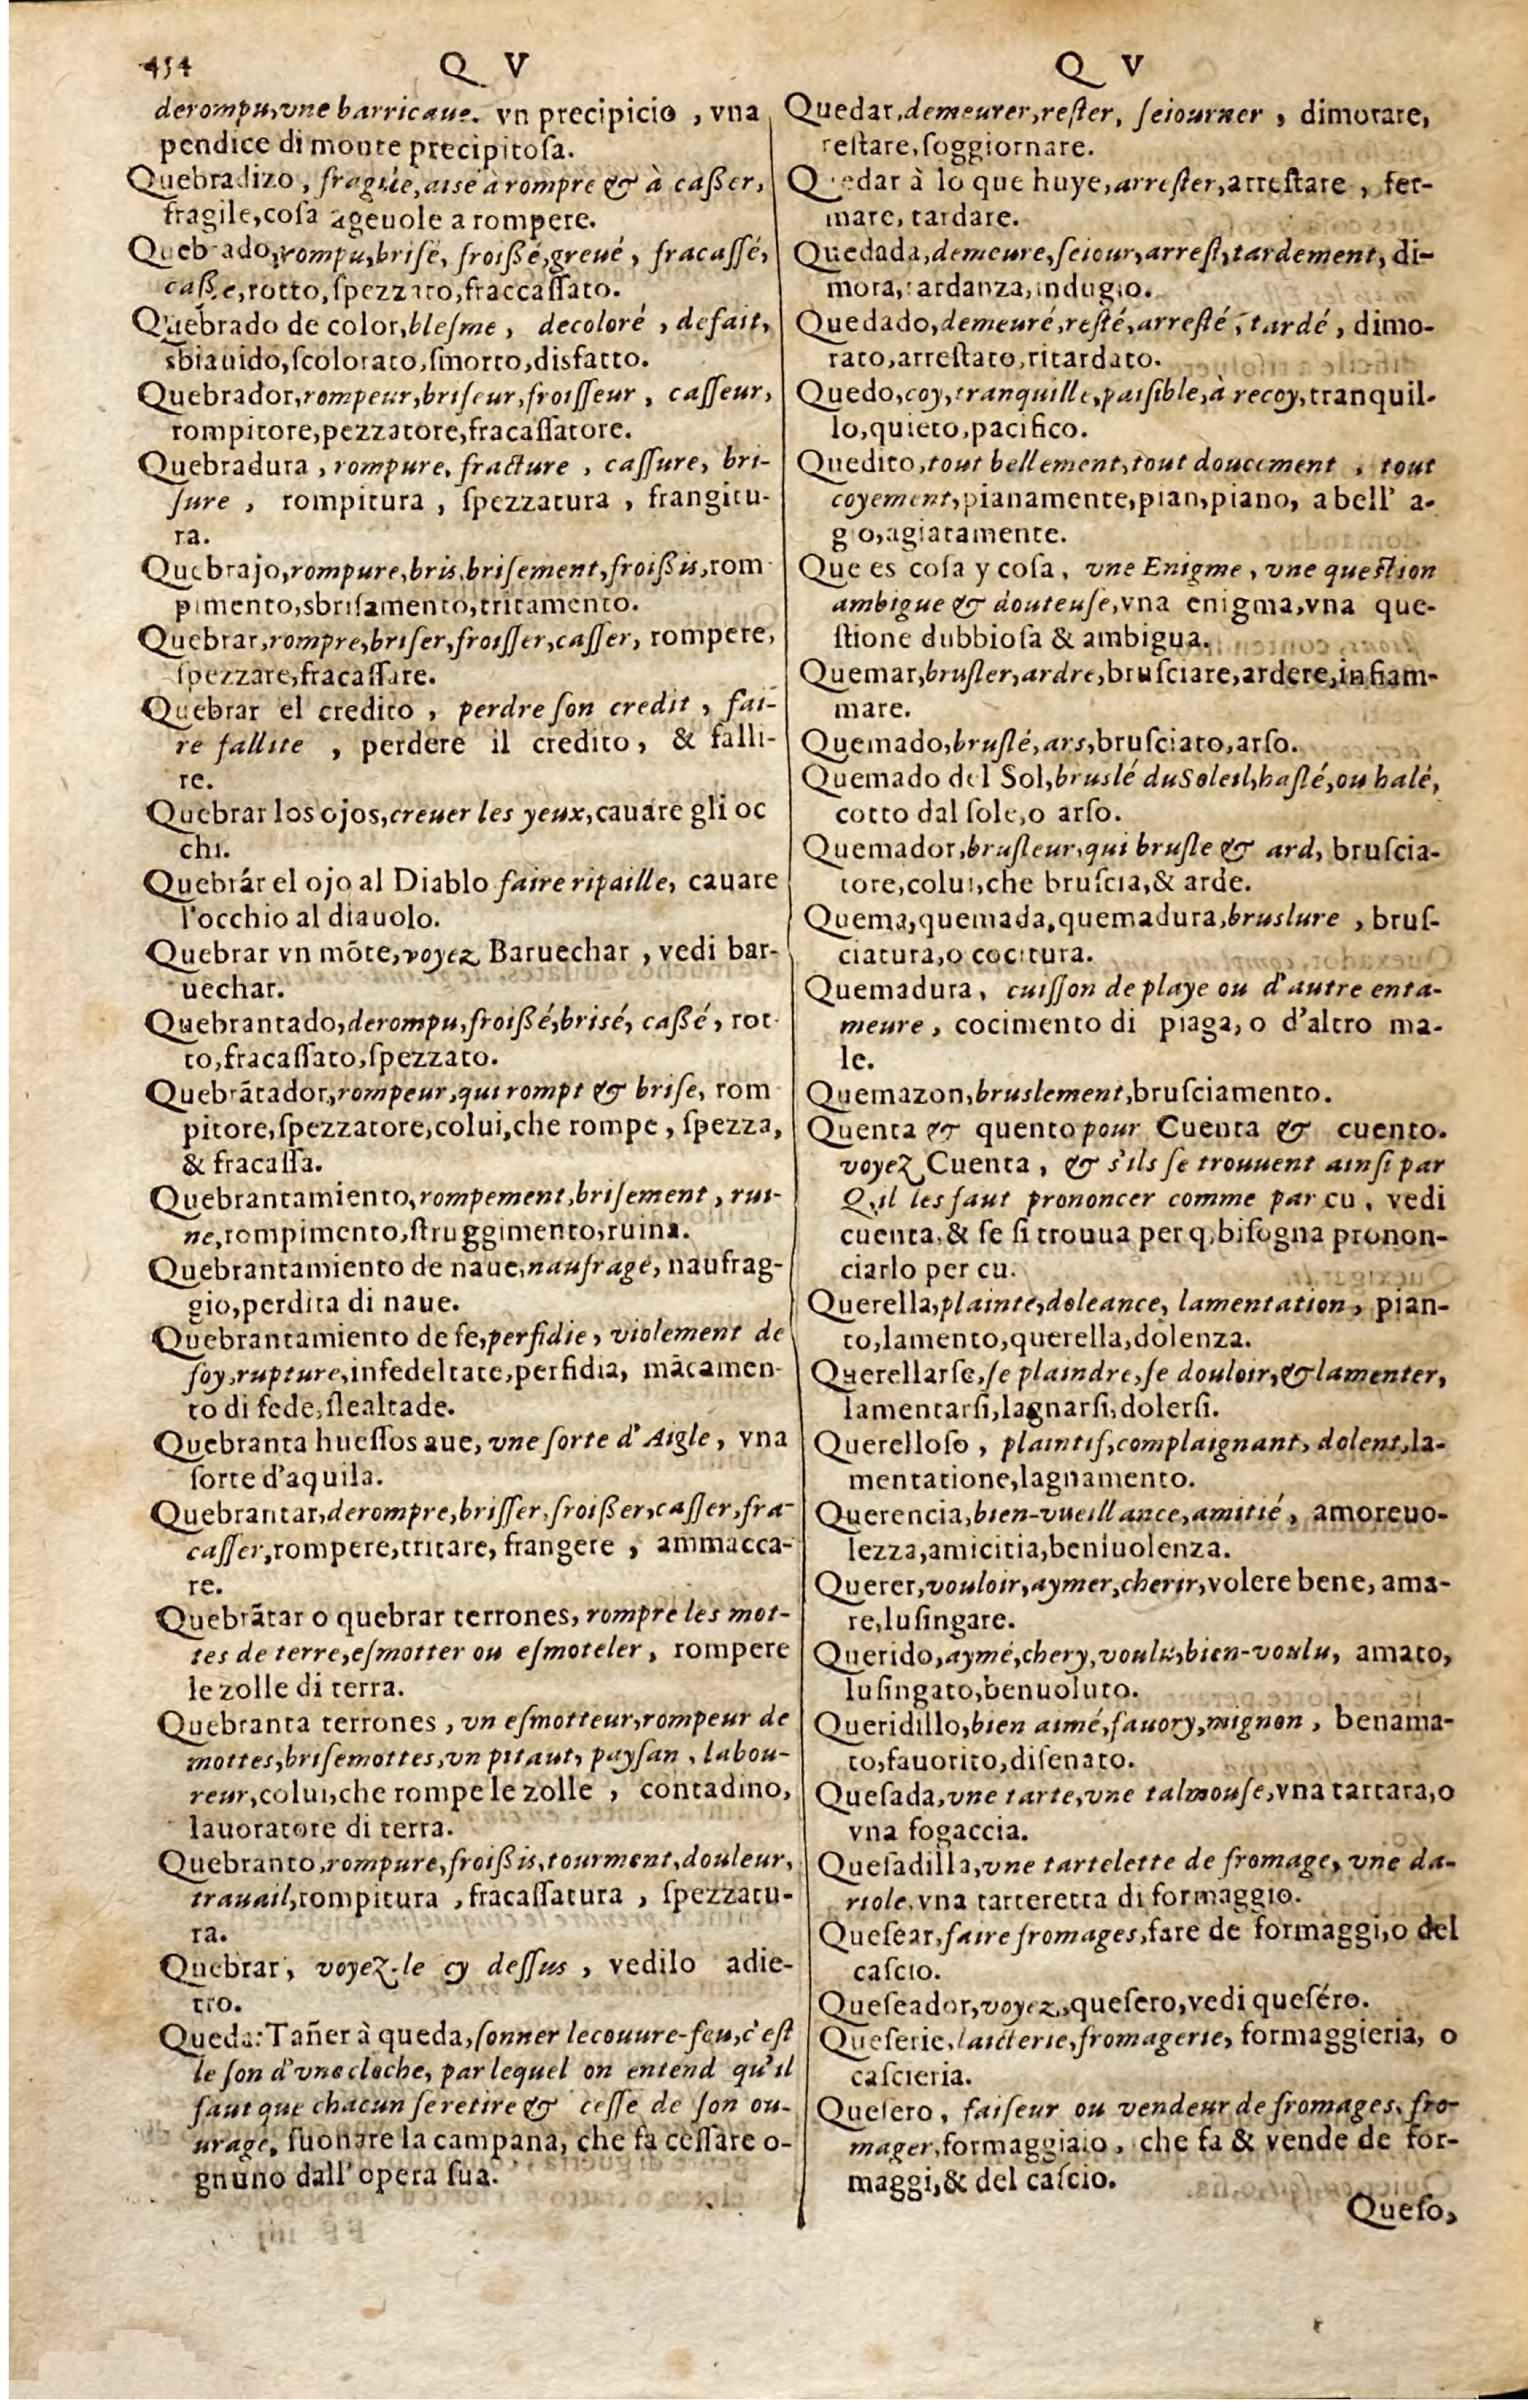 454
Q V
derompu, vne barricaue. vn precipicio, vna
pendice di monte precipitoſa.
Quebradizo, fragile, aisé à rompre & à caßer,
fragile, coſa ageuole a rompere.
Quebrado, rompu, briſé, froißé, greué, fracaſſé,
caßé, rotto, ſpezzato, fraccaſſato.
Quebrado de color, bleſme, decoloré, defait,
sbiauido, ſcolorato, ſmorto, disfatto.
Quebrador, rompeur, briſeur, froiſſeur, caſſeur,
rompitore, pezzatore, fracaſſatore.
Quebradura, rompure, fracture, caſſure, bri-
ſure, rompitura, ſpezzatura, frangitu-
ra.
Quebrajo, rompure, bris, briſement, froißis, rom
pimento, sbriſamento, tritamento.
Quebrar, rompre, briſer, froiſſer, caſſer, rompere,
ſpezzare, fracaſſare.
Quebrar el credito, perdre ſon credit, fai-
re fallite, perdere il credito, & falli-
re.
Quebrar los ojos, creuer les yeux, cauare gli oc
chi.
Quebrár el ojo al Diablo faire ripaille, cauare
l'occhio al diauolo.
Quebrar vn mõte, voyez Baruechar, vedi bar-
uechar.
Quebrantado, derompu, froißé, brisé, caßé, rot-
to, fracaſſato, ſpezzato.
Quebrãtador, rompeur, qui rompt & briſe, rom
pitore, ſpezzatore, colui, che rompe, ſpezza,
& fracaſſa.
Quebrantamiento, rompement, briſement, rui-
ne, rompimento, ſtruggimento, ruina.
Quebrantamiento de naue, naufrage, naufrag-
gio, perdita di naue.
Quebrantamiento de fe, perfidie, violement de
foy, rupture, infedeltate, perfidia, mãcamen-
to di fede, ſlealtade.
Quebranta hueſſos aue, vne ſorte d'Aigle, vna
ſorte d'aquila.
Quebrantar, derompre, briſſer, froißer, caſſer, fra-
caſſer, rompere, tritare, frangere, ammacca-
re.
Quebrãtar o quebrar terrones, rompre les mot-
tes de terre, eſmotter ou eſmoteler, rompere
le zolle di terra.
Quebranta terrones, vn eſmotteur, rompeur de
mottes, briſemottes, vn pitaut, payſan, labou-
reur, colui, che rompe le zolle, contadino,
lauoratore di terra.
Quebranto, rompure, froißis, tourment, douleur,
trauail, rompitura, fracaſſatura, ſpezzatu-
ra.
Quebrar, voyez-le cy deſſus, vedilo adie-
tro.
Queda: Tañer à queda, ſonner le couure-feu, c'eſt
le ſon d'vne cloche, par lequel on entend qu'il
faut que chacun ſe retire & ceſſe de ſon ou-
urage, ſuonare la campana, che fa ceſſare o-
gnuno dall'opera ſua.
Q V
Quedar, demeurer, reſter, ſeiourner, dimorare,
reſtare, ſoggiornare.
Quedar à lo que huye, arreſter, arreſtare, fer-
mare, tardare.
Quedada, demeure, ſeiour, arreſt, tardement, di-
mora, tardanza, indugio.
Quedado, demeuré, reſté, arreſté, tardé, dimo-
rato, arreſtato, ritardato.
Quedo, coy, tranquille, paiſible, à recoy, tranquil-
lo, quieto, pacifico.
Quedito, tout bellement, tout doucement, tout
coyement, pianamente, pian, piano, a bell' a-
gio, agiatamente.
Que es coſa y coſa, vne Enigme, vne queſtion
ambigue & douteuſe, vna enigma, vna que-
ſtione dubbioſa & ambigua.
Quemar, bruſler, ardre, bruſciare, ardere, infiam-
mare.
Quemado, bruſlé, ars, bruſciato, arſo.
Quemado del Sol, bruslé du Soleil, haſlé, ou halé,
cotto dal ſole, o arſo.
Quemador, bruſleur, qui bruſle & ard, bruſcia-
tore, colui, che bruſcia, & arde.
Quema, quemada, quemadura, bruslure, bruſ-
ciatura, o cocitura.
Quemadura, cuiſſon de playe ou d'autre enta-
meure, cocimento di piaga, o d'altro ma-
le.
Quemazon, bruslement, bruſciamento.
Quenta & quento pour Cuenta & cuento.
voyez Cuenta, & s'ils ſe trouuent ainſi par
Q, il les faut prononcer comme par cu, vedi
cuenta, & ſe ſi trouua per q, biſogna pronon-
ciarlo per cu.
Querella, plainte, doleance, lamentation, pian-
to, lamento, querella, dolenza.
Querellarſe, ſe plaindre, ſe douloir, & lamenter,
lamentarſi, lagnarſi, dolerſi.
Querelloſo, plaintif, complaignant, dolent, la-
mentatione, lagnamento.
Querencia, bien-vueillance, amitié, amoreuo-
lezza, amicitia, beniuolenza.
Querer, vouloir, aymer, cherir, volere bene, ama-
re, luſingare.
Querido, aymé, chery, voulu, bien-voulu, amato,
luſingato, benuoluto.
Queridillo, bien aimé, fauory, mignon, benama-
to, fauorito, diſenato.
Queſada, vne tarte, vne talmouſe, vna tartara, o
vna fogaccia.
Queſadilla, vne tartelette de fromage, vne da-
riole, vna tarteretta di formaggio.
Queſear, faire fromages, fare de formaggi, o del
caſcio.
Queſeador, voyez, queſero, vedi queſéro.
Queſerie, laicterie, fromagerie, formaggieria, o
caſcieria.
Queſero, faiſeur ou vendeur de fromages, fro-
mager, formaggiaio, che fa & vende de for-
maggi, & del caſcio.
Queſo,